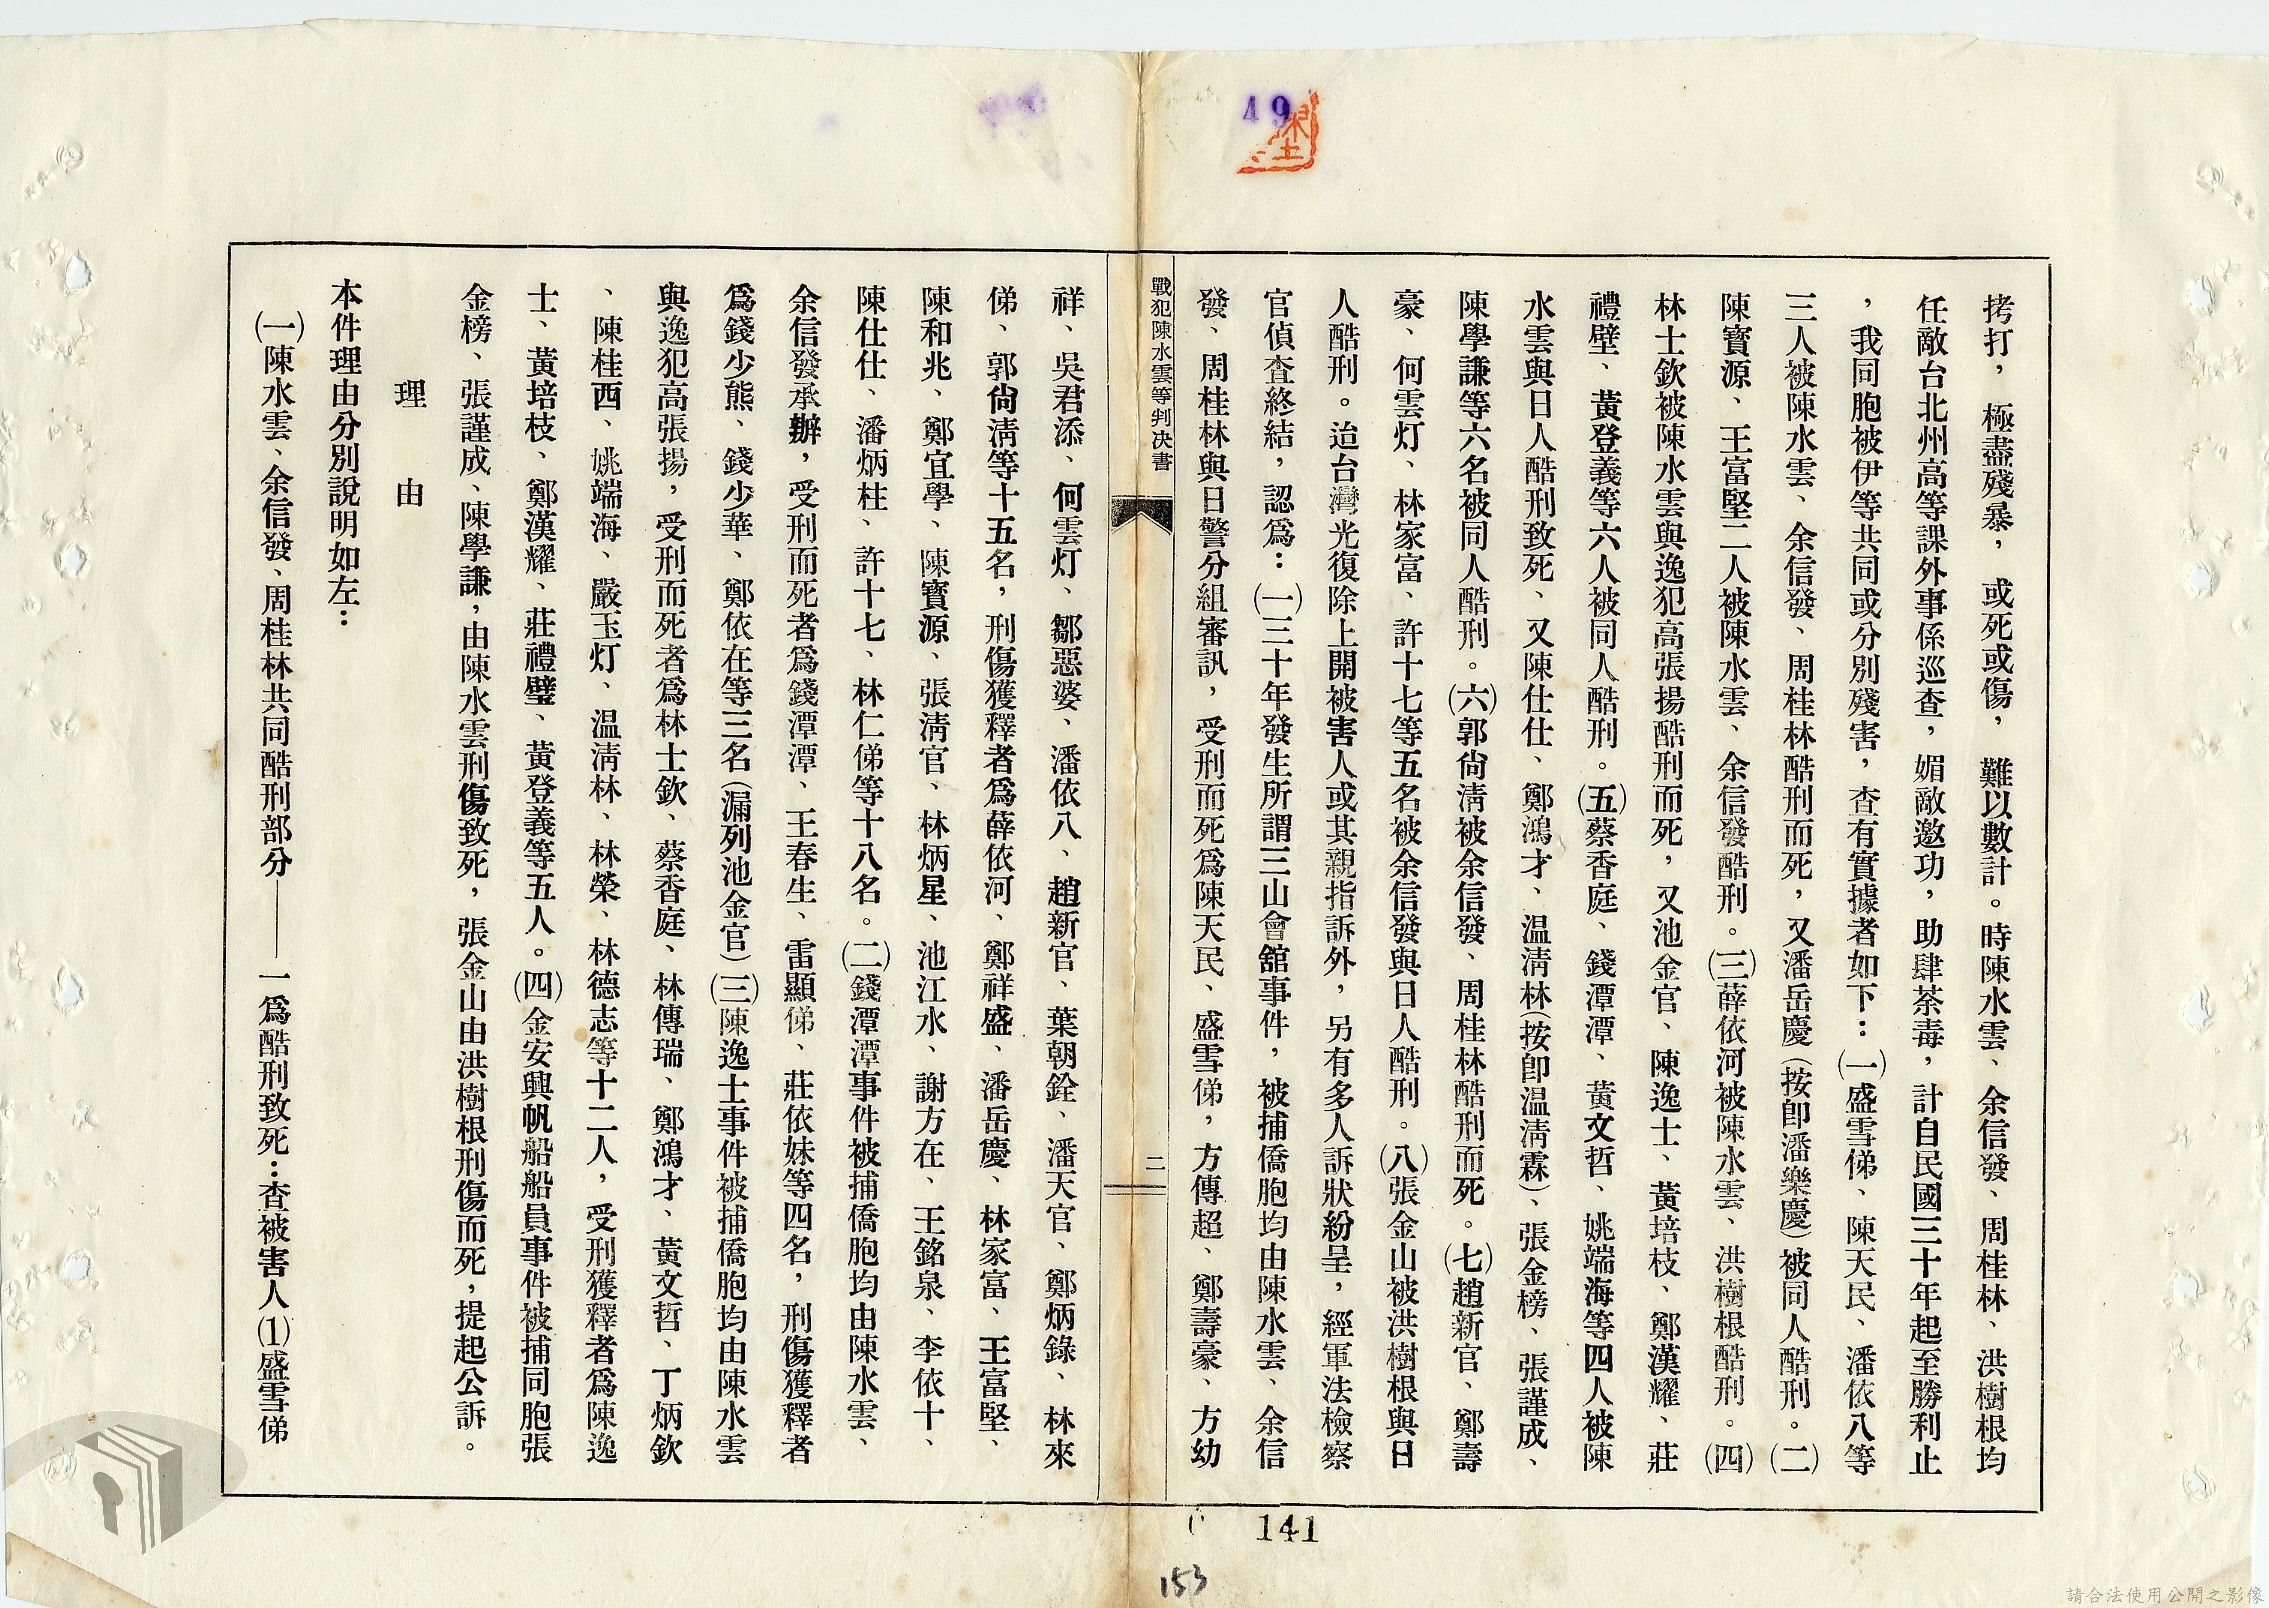 49
拷打，極盡殘暴，或死或傷，難以數計。時陳水雲、余信發、周桂林、洪樹根均
任敵台北州高等課外事係巡查，媚敵邀功，助肆荼毒，計自民國三十年起至勝利止
，我同胞被伊等共同或分別殘害，查有實據者如下：㈠盛雪俤、陳天民、潘依八等
三人被陳水雲、余信發、周桂林酷刑而死，又潘岳慶（按卽潘樂慶）被同人酷刑。㈡
陳寶源、王富堅二人被陳水雲、余信發酷刑。㈢薛依河被陳水雲、洪樹根酷刑。㈣
林士欽被陳水雲與逸犯高張揚酷刑而死，又池金官、陳逸士、黃培枝、鄭漢耀、莊
禮壁、黃登義等六人被同人酷刑。㈤蔡香庭、錢潭潭、黃文哲、姚端海等四人被陳
水雲與日人酷刑致死、又陳仕仕、鄭鴻才、温淸林（按卽温淸霖）、張金榜、張謹成、
陳學謙等六名被同人酷刑。㈥郭尙淸被余信發、周桂林酷刑而死。㈦趙新官、鄭壽
豪、何雲灯、林家富、許十七等五名被余信發與日人酷刑。㈧張金山被洪樹根與日
人酷刑。迨台灣光復除上開被害人或其親指訴外，另有多人訴狀紛呈，經軍法檢察
官偵査終結，認爲：㈠三十年發生所謂三山會舘事件，被捕僑胞均由陳水雲、余信
發、周桂林與日警分組審訊，受刑而死爲陳天民、盛雪俤，方傳超、鄭壽豪、方幼
戰犯陳水雲等判决書
二
祥、吳君添、何雲灯、鄒惡婆、潘依八、趙新官、葉朝銓、潘天官、鄭炳錄、林來
俤、郭尙淸等十五名，刑傷獲釋者爲薛依河、鄭祥盛、潘岳慶、林家富、王富堅、
陳和兆、鄭宜學、陳寶源、張淸官、林炳星、池江水、謝方在、王銘泉、李依十、
陳仕仕、潘炳柱、許十七、林仁俤等十八名。㈡錢潭潭事件被捕僑胞均由陳水雲、
余信發承辦，受刑而死者爲錢潭潭、王春生、雷顯俤、莊依妹等四名，刑傷獲釋者
爲錢少熊、錢少華、鄭依在等三名（漏列池金官）㈢陳逸士事件被捕僑胞均由陳水雲
與逸犯高張揚，受刑而死者爲林士欽、蔡香庭、林傳瑞、鄭鴻才、黃文哲、丁炳欽
、陳桂西、姚端海、嚴玉灯、温淸林、林榮、林德志等十二人，受刑獲釋者爲陳逸
士、黃培枝、鄭漢耀、莊禮璧、黃登義等五人。㈣金安興帆船船員事件被捕同胞張
金榜、張謹成、陳學謙，由陳水雲刑傷致死，張金山由洪樹根刑傷而死，提起公訴。
理由
本件理由分別說明如左：
㈠陳水雲、余信發、周桂林共同酷刑部分——一爲酷刑致死：查被害人⑴盛雪俤
141
153
請合法使用公開之影像